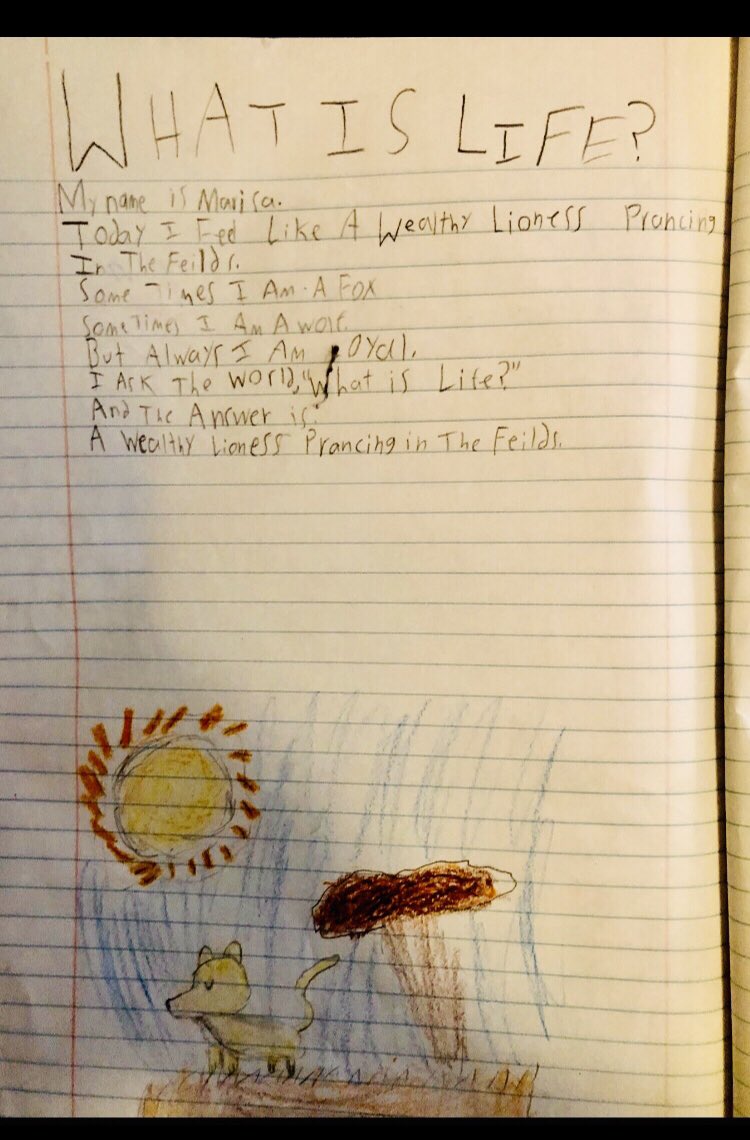 WHAT IS LIFE?
My name is Marisa.
Today I Feel Like A Wealthy Lioness Prancing
In The Feilds.
Some Times I Am A Fox
Some Times I Am A wolf.
But Always I Am loyal.
I Ask The world, "What is Life?"
And The Answer is:
A Wealthy Lioness Prancing in The Feilds.